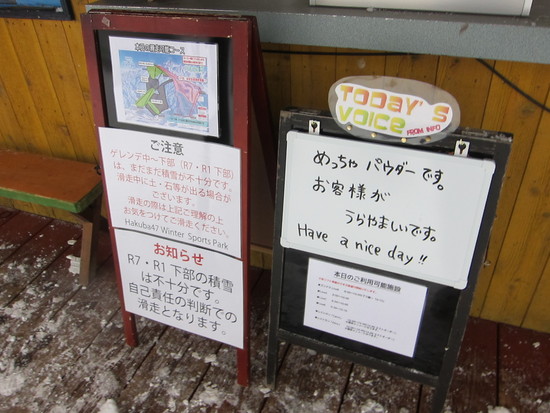 本日の滑走可能コース
ご注意
ゲレンデ中～下部（R7・R1下部）
は、まだまだ積雪が不十分です。
滑走中に土・石等が出る場合が
ございます。
滑走の際は上記ご理解の上
お気をつけてご滑走ください。
Hakuba47 Winter Sports Park
お知らせ
R7・R1下部の積雪
は不十分です。
自己責任の判断での
滑走となります。
TODAY'S
VOICE
FROM INFO
めっちゃ パウダーです。
お客様が
うらやましいです。
Have a nice day!!
本日のご利用可能施設